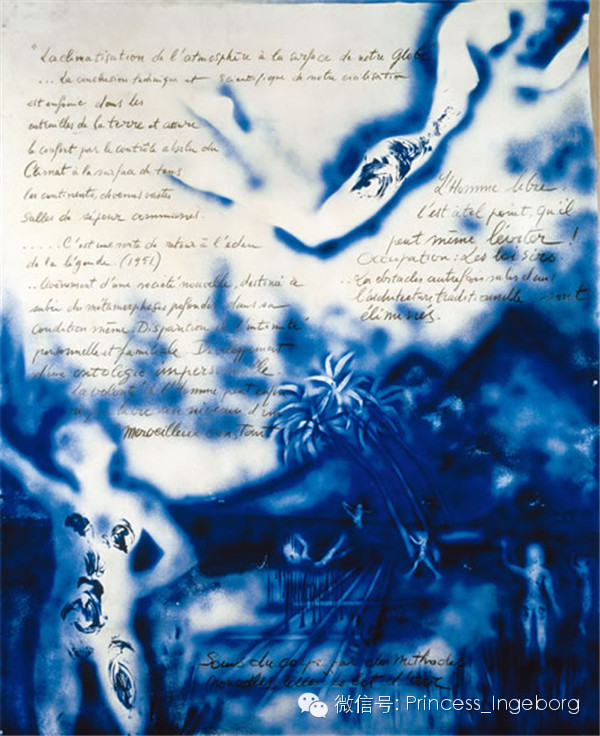 "La climatisation de l'atmosphère à la surface de notre Globe
... La conclusion technique et scientifique de notre civilisation
est enfouie dans les
entrailles de la terre et assure
le confort par le contrôle absolu du
Climat à la surface de tous
les continents, devenus vastes
salles de séjour communes.
..... C'est une sorte de retour à l'éden
de la légende. (1951)
.. Avènement d'une société nouvelle, destinée à
subir des métamorphoses profondes dans sa
condition même. Disparition de l'intimité
personnelle et familiale. Développement
d'une ontologie impersonnelle
La volonté de l'Homme peut enfin
niveau d'un
merveilleux constant
L'Homme libre
l'est à tel point, qu'il
peut même léviter !
Occupation : Les loisirs.
... Les obstacles autrefois subis dans
l'architecture traditionnelle sont
éliminés.
Soins du corps par des méthodes
nouvelles, telles le lit d'air
微信号: Princess_Ingeborg